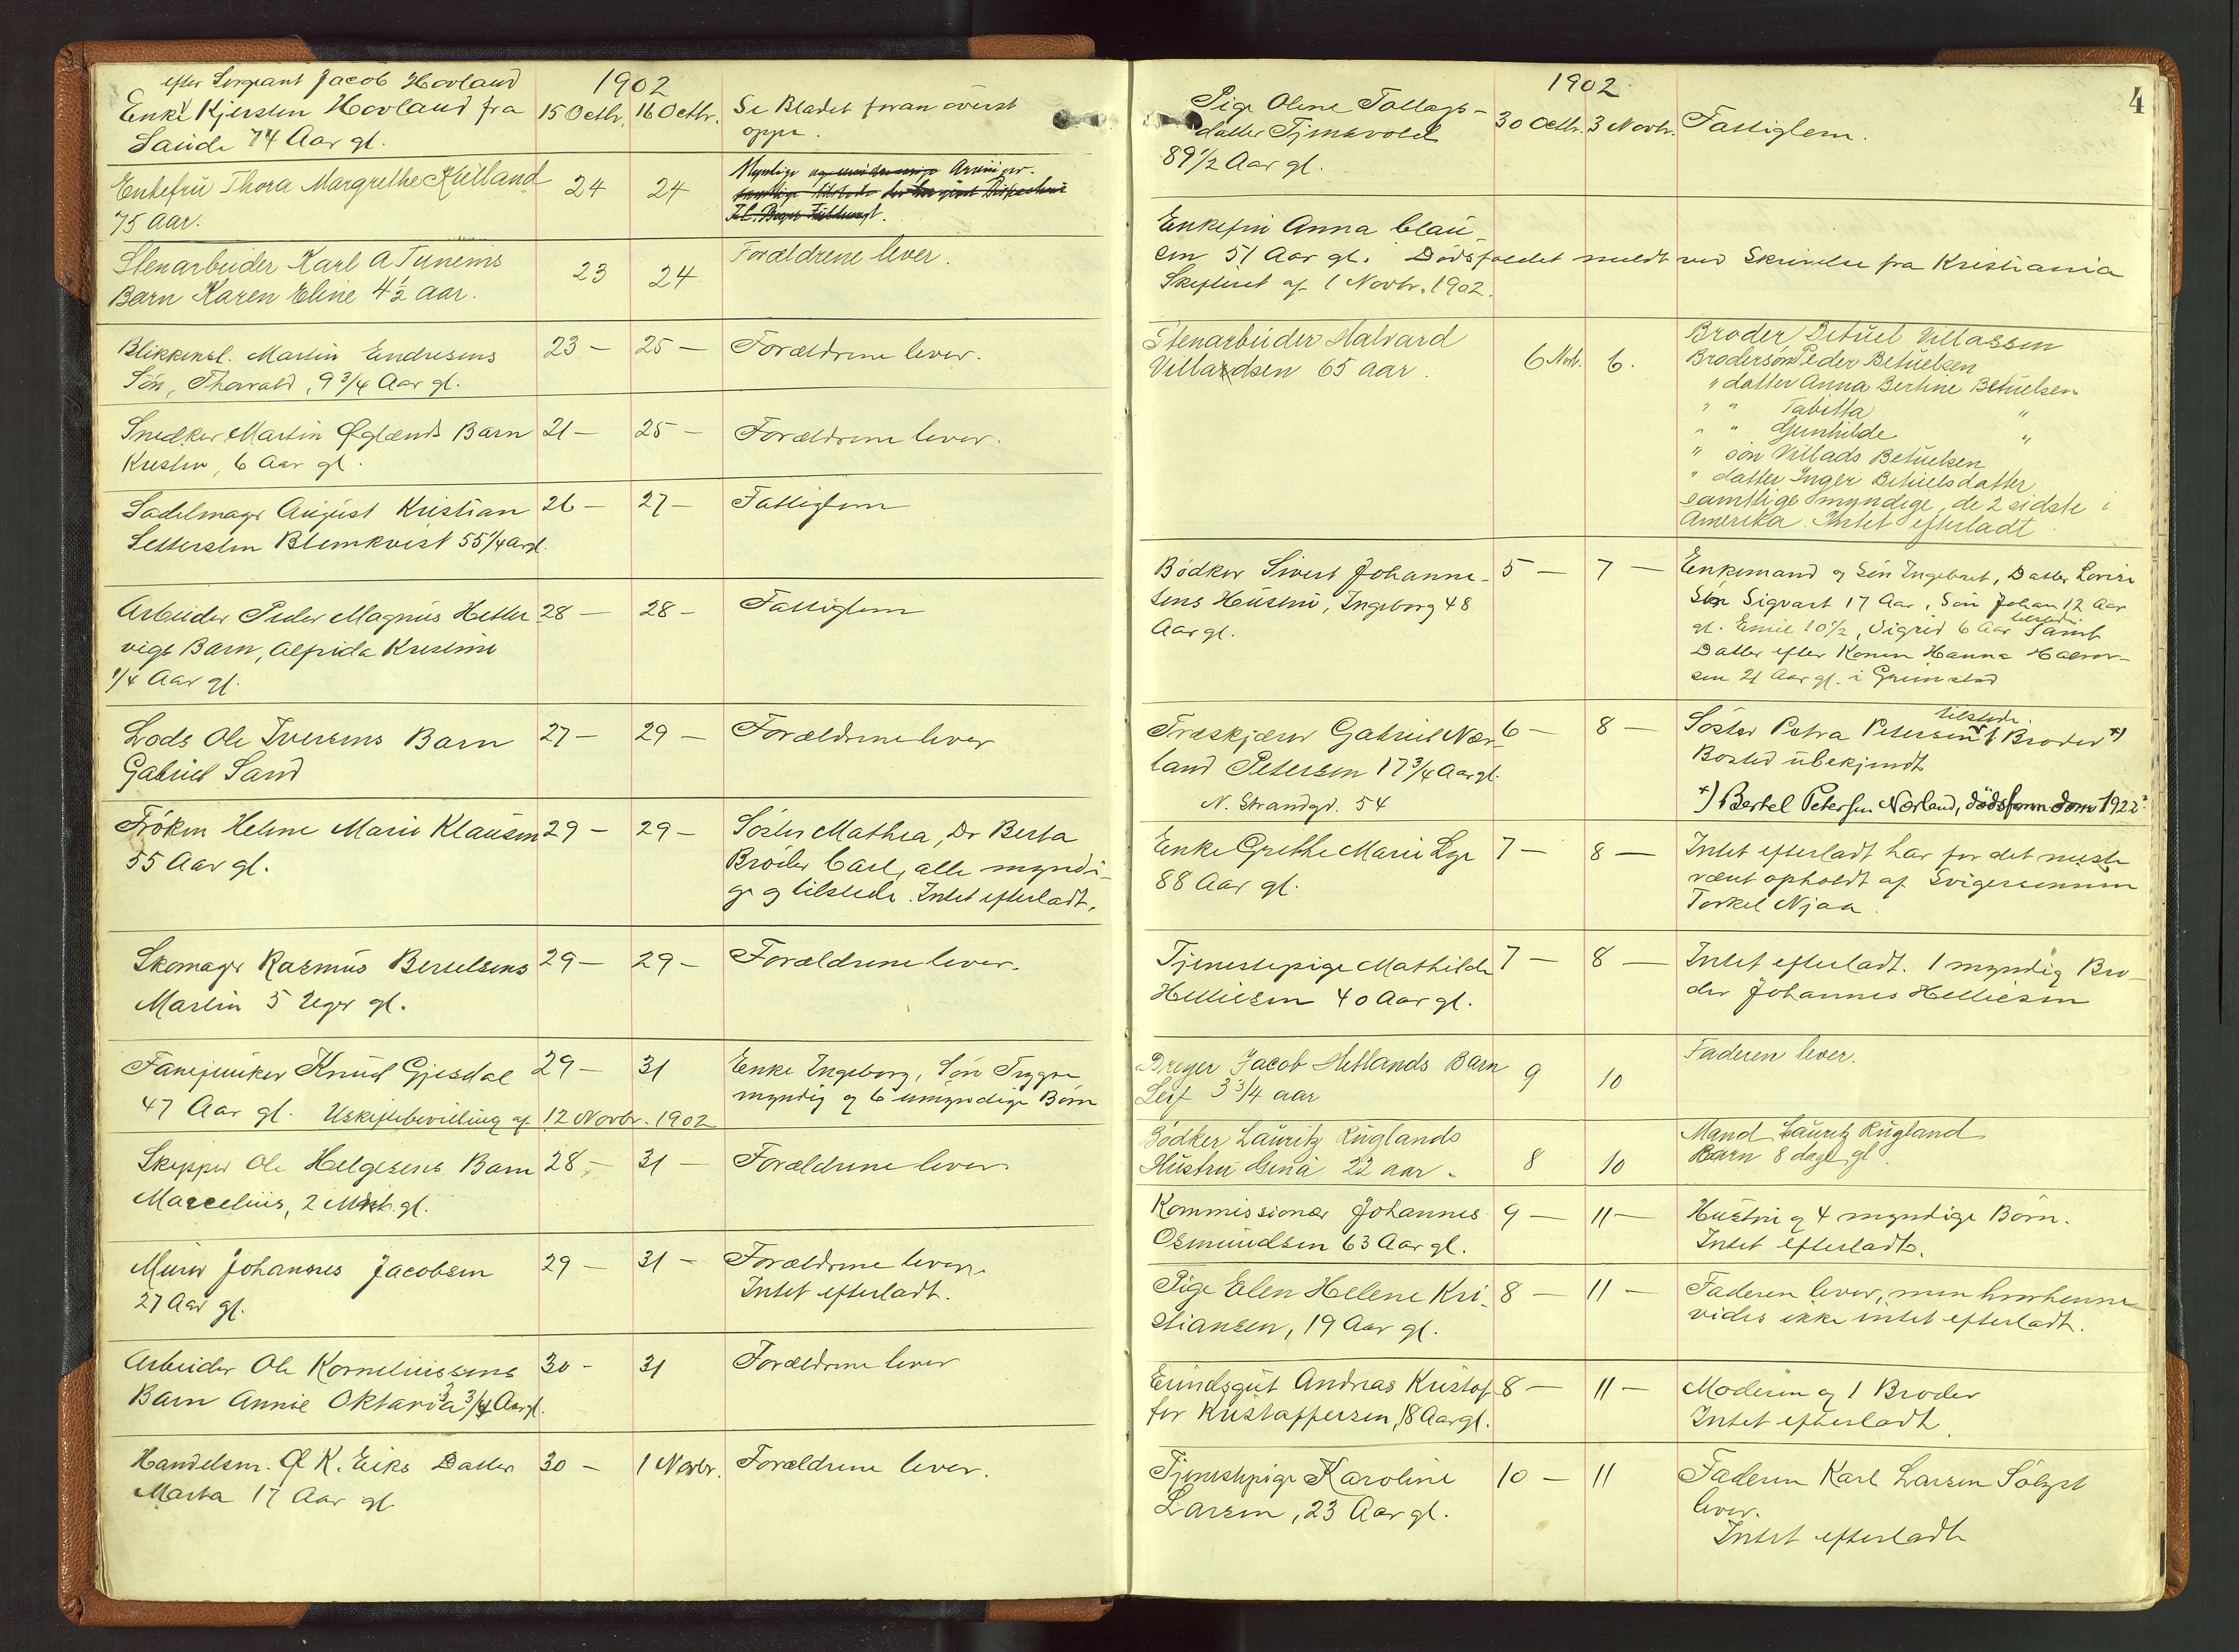 1902
efter Sergeant Jacob Hovland
Enke Kjersten Hovland fra 15 Octbr. 16 Octbr. Se Bladet foran överst
Saude 74 Aar gl. oppe.
Enkefru Thora Margrethe Kielland 24 24 Myndige
75 Aar.
Stenarbeider Karl A Tunems 23 24 Forældrene lever.
Barn Karen Eline 4½ aar.
Blikkensl. Martin Endresens 23 – 25 – Forældrene lever.
Sön, Thorvald, 9 3/4 Aar gl.
Snedker Martin Øglænds Barn 21 – 25 – Forældrene lever.
Kristen, 6 Aar gl.
Sadelmager August Kristian 26 – 27 – Fattiglem
Blemkvist 55 1/4 Ar gl.
Arbeider Peder Magnus Hetle 28 – 28 – Fattiglem
vigs Barn, Alfrida Kristine
1/4 Aar gl.
Lods Ole Iversens Barn 27 – 29 – Forældrene lever
Gabriel Sand
Fröken Helene Marie Klausen 29 – 29 – Söster Mathea, Do Berta
55 Aar gl. Broder Carl, alle myndi-
ge og tilstede. Intet efterladt.
Skomager Rasmus Bertelsens 29 – 29 – Forældrene lever.
Martin 5 Uger gl.
Fanejunker Knud Gjesdal 29 – 31 Enke Ingeborg, Sön Trygve
47 Aar gl. Uskiftebevilling af 12 Novbr. 1902 myndig og 6 umyndige Börn
Skipper Ole Helgesens Barn 28 – 31 – Forældrene lever
Marcelius, 2 Mdr. gl.
Murer Johannes Jacobsen 29 – 31 – Forældrene lever.
27 Aar gl. Intet efterladt.
Arbeider Ole Korneliussens 30 – 31 Forældrene lever
Barn Annie Oktavia 3/4 Aar gl.
Handelsm. O K. Eiks Datter 30 – 1 Novbr. Forældrene lever.
Marta 17 Aar gl.
1902
4
Pige Oline Tollags- 30 Octbr. 3 Novbr. Fattiglem.
datter
89½ Aar gl.
Enkefru Anna Clau
sen 51 Aar gl. Dödsfaldet meldt ved Skrivelse fra Kristiania
Skifteret af 1 Novbr. 1902.
Stenarbeider Halvard 6 Novb. 6. Broder, Betuel Villassen
Villadsen 65 aar. Brodersön Peder Betuelsen
" datter Anna Bertine Betuelsen
" " Tabitta "
" " Gunhilde "
" sön Villads Betuelsen
" datter Inger Betuelsdatter
samtlige myndige, de 2 sidste i
Amerika. Intet efterladt
Bödker Sivert Johanne- 5 – 7 – Enkemand og Sön Ingebret, Datter Lovise
sens Hustru, Ingeborg 48 Sön Sigvart 17 Aar, Sön Johan 12 Aar
Aar gl. gl. Emil 10½, Sigrid 6 Aar tilstede Samt
Datter efter Konen Hanna Halvor-
sen 21 Aar gl. i Grimstad
Træskjærer Gabriel Nær- 6 – 8 – Söster Petra Petersen tilstede. Broder *)
land Petersen 17 3/4 Aar gl. Bosted ubekjendt
N. Strandgd. 54 *) Bertel Petersen Nærland, 1922
Enke Grethe Marie Lye 7 – 8 – Intet efterladt har for det meste
88 Aar gl. været opholdt af Svigersønnen
Torkel Njaa.
Tjenestepige Mathilde 7 – 8 – Intet efterladt. 1 myndig Bro-
Helliesen 40 Aar gl. der Johannes Helliesen
Dreyer Jacob Hetlands Barn 9 10 Faderen lever.
Leif 3 3/4 aar
Bödker Lauritz Ruglands 8 10 Mand Lauritz Rugland
Hustru Gina 22 aar. Barn 8 dage gl
Kommissionær Johannes 9 – 11 – Hustru og 4 myndige Börn.
Osmundsen 63 Aar gl. Intet efterladt.
Pige Elen Helene Kri- 8 – 11 – Faderen lever, men hvorhenne
stiansen, 19 Aar gl. vides ikke intet efterladt.
Erindsgut Andreas Kristof- 8 – 11 – Moderen og 1 Broder
fer Kristoffersen, 18 Aar gl. Intet efterladt.
Tjenestepige Karoline 10 – 11 Faderen Karl Larsen
Larsen, 23 Aar gl. lever.
Intet efterladt